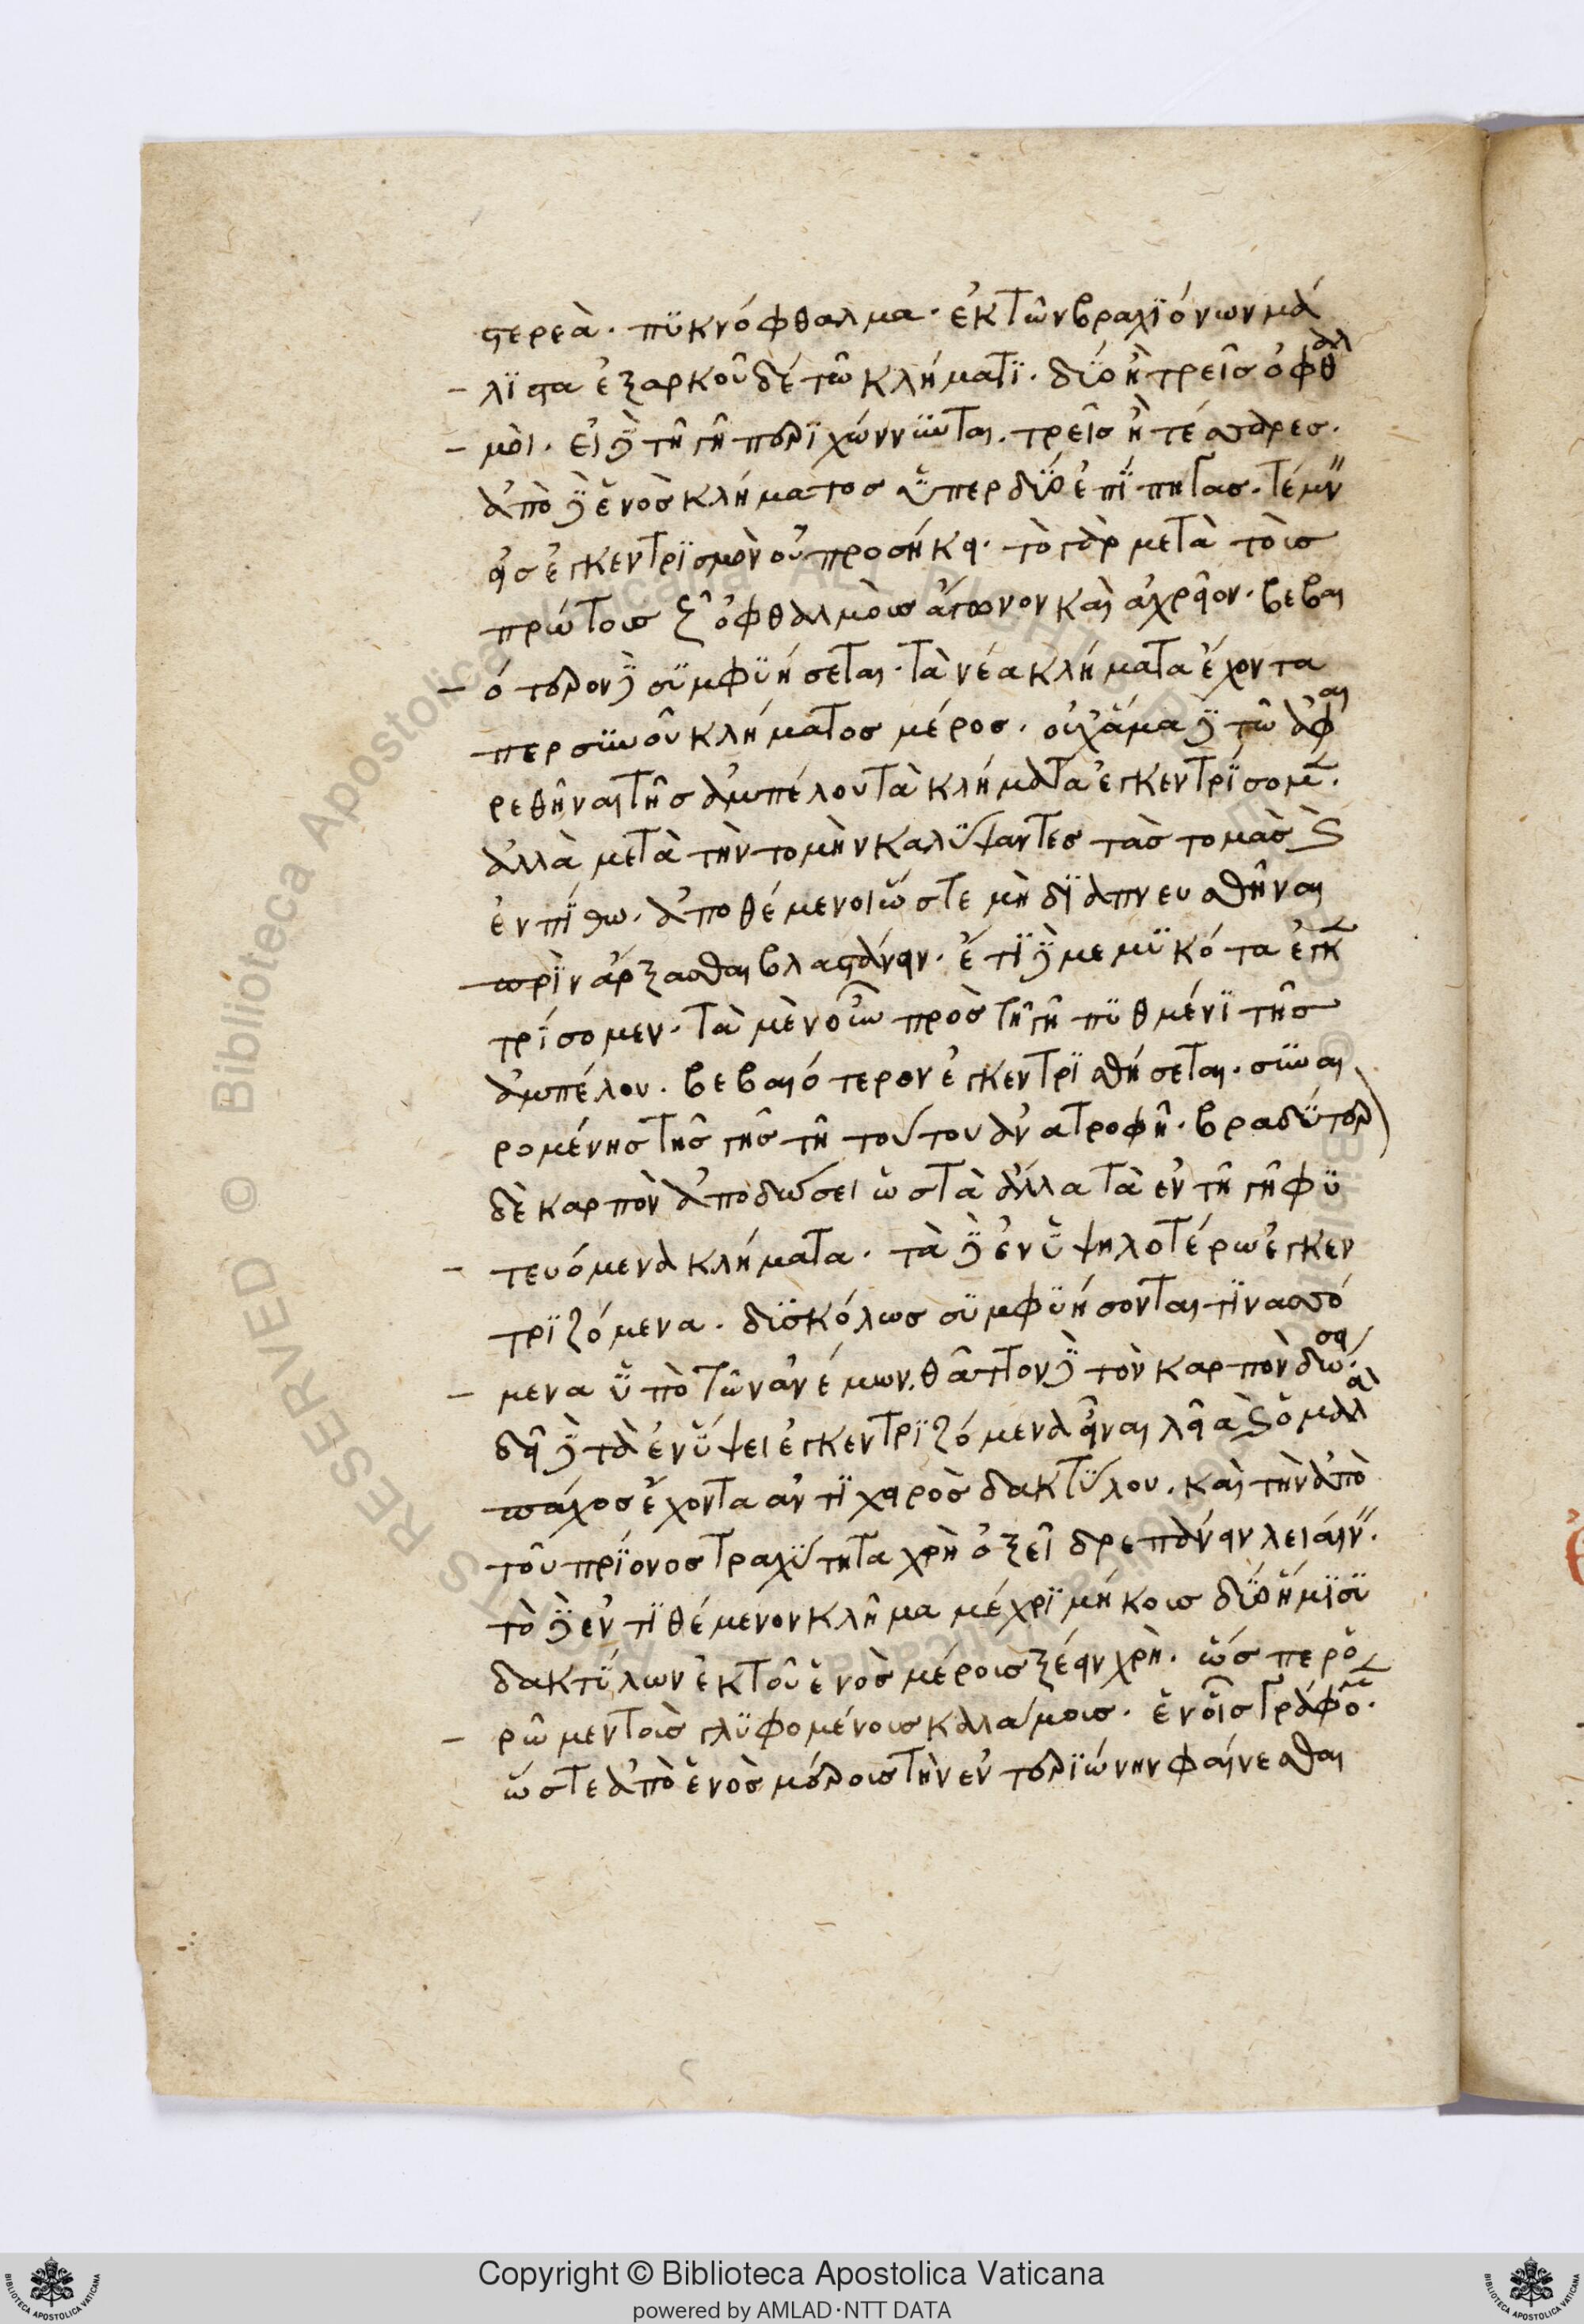 στερεὰ. πϋκνόφθαλμα. ἐκ τῶν βραχϊόνων μά
λϊστα ἐξαρκοῦ δέ τῶ κλήματϊ. δύο ἢ τρεῖσ ὀφθαλ
μοὶ. εἰ δὲ τῆ γῆ περϊχώννϋνται. τρεῖσ ἢ τέσσαρεσ.
ἀπὸ δὲ ἑνὸσ κλήματοσ ὑπερ δύο ἐπϊ πήγασ. τέμν
εισ ἐγκεντρϊσμὸν οὐ προσήκει. τὸ γὰρ μετὰ τοὺσ
πρώτουσ ζ ὀφθαλμοὺσ ἄγονον καὶ ἀχρεῖον. βεβαι
ότερον δὲ σϋμφϋήσεται. τὰ νέα κλήματα ἔχοντα
περσϋνοῦ κλήματοσ μέροσ. οὐχ ἅμα δὲ τῶ ἀφαι
ρεθῆναι τῆσ ἀμπέλου τὰ κλήματα ἐγκεντρϊσομ.
ἀλλὰ μετὰ τὴν τομὴν καλύψαντεσ τὰσ τομὰσ καὶ
ἐν πίθω. ἀποθέμενοι ὥστε μὴ δϊαπνευσθῆναι
πρϊν ἄρξασθαι βλαστάνειν. ἔτϊ δὲ μεμϋκότα ἐγκ
τρίσομεν. τὰ μὲν οὖν πρὸσ τῆ γῆ πϋθμένϊ τῆσ
ἀμπέλου. βεβαιότερον ἐγκεντρϊσθήσεται. σϋναι
ρομένησ τῆσ γῆσ τῆ τούτου ἀνατροφῆ. βραδύτερ
δὲ καρπὸν ἀποδώσει ὡσ τὰ ἄλλα τὰ ἐν τῆ γῆ φϋ
τευόμενα κλήματα. τὰ δὲ ἐν ὑψηλοτέρω ἐγκεν
τρϊζόμενα. δϋσκόλωσ σϋμφϋήσονται τϊνασσό
μενα ὑπὸ τῶν ἀνέμων. θᾶττον δὲ τὸν καρπὸν δώσει.
δεῖ δὲ τὰ ἐν ὕψει ἐγκεντρϊζόμενα εἶναι λεῖα καὶ ὁμαλὰ
πάχοσ ἔχοντα ἀντϊχειρὸσ δακτύλου. καὶ τὴν ἀπὸ
τοῦ πρϊονοσ τραχύτητα χρὴ ὀξεῖ δρεπάνειν λειάιν.
τὸ δὲ ἐντϊθέμενον κλῆμα μέχρϊ μήκουσ δύο ἥμϊσϋ
δακτϋλων ἐκ τοῦ ἑνὸσ μέρουσ ξέειν χρὴ. ὥσπερ ὁ
ρῶμεν τοὺσ γλϋφομένουσ καλάμουσ. ἐν οἷσ γράφο.
ὥστε ἀπὸ ἑνὸσ μέρουσ τὴν ἐντερϊώνην φαίνεσθαι
Copyright © Biblioteca Apostolica Vaticana
powered by AMLAD·NTT DATA